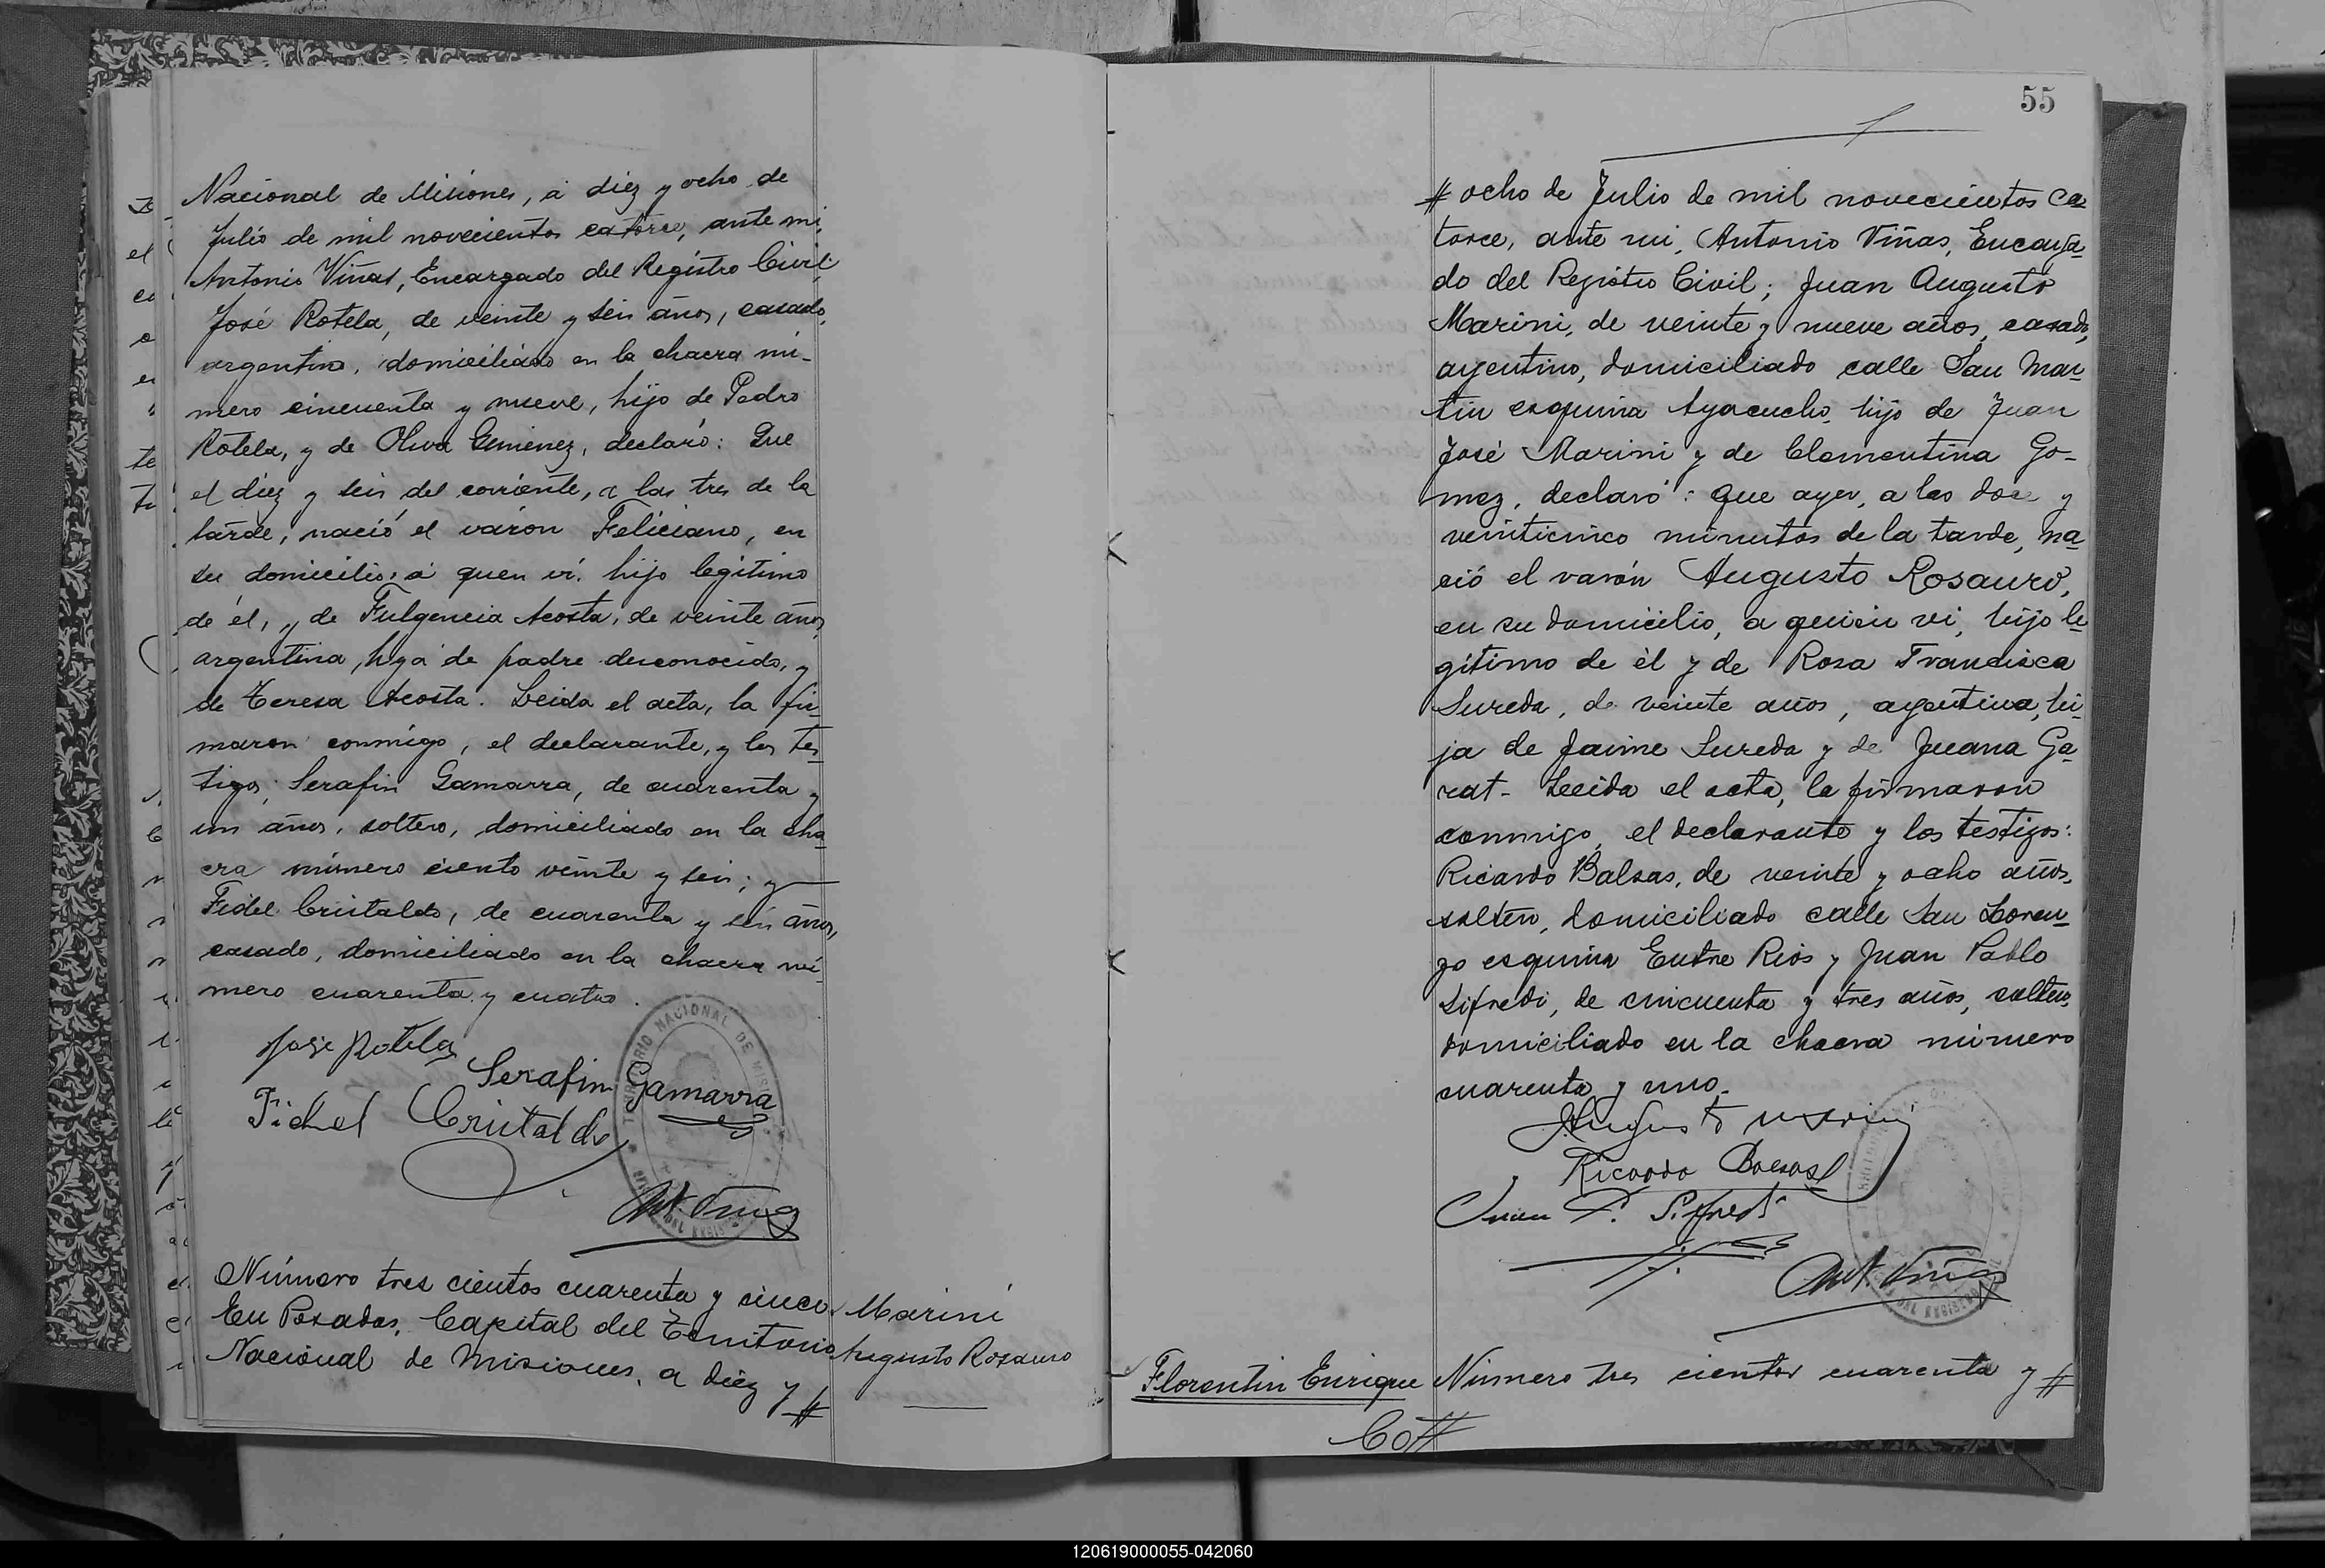 Nacional de Misiones, á diez y ocho de
Julio de mil novecientos catorce, ante mi,
Antonio Viñas, Encargado del Registro Civil,
José Rotela, de veinte y seis años, casado,
argentino, domiciliado en la chacra nú-
mero cincuenta y nueve, hijo de Pedro
Rotela, y de Oliva Gimenez, declaró: Que
el diez y seis del corriente, a las tres de la
tarde, nació el varon Feliciano, en
su domicilio, á quen ví, hijo legítimo
de él, y de Fulgencia Acosta, de veinte años,
argentina, hija de padre desconocido, y
de Teresa Acosta. Leida el acta, la fir-
maron conmigo, el declarante, y los tes-
tigos; Serafin Gamarra, de cuarenta y
un años, soltero, domiciliado en la cha-
cra número ciento veinte y seis; y
Fidel Cristaldo, de cuarenta y seis años,
casado, domiciliado en la chacra nú-
mero cuarenta y cuatro.
José Rotela
Serafin Gamarra
Fidel Cristaldo
TERRITORIO NACIONAL DE MISIONES
Ant. Viñas
Número tres cientos cuarenta y cinco.
En Posadas, Capital del Territorio
Nacional de Misiones, a diez y #
Marini
Augusto Rosauro
55
# ocho de Julio de mil novecientos ca-
torce, ante mi, Antonio Viñas, Encarga-
do del Registro Civil; Juan Augusto
Marini, de veinte y nueve años, casado,
argentino, domiciliado calle San Mar-
tin esquina Ayacucho, hijo de Juan
José Marini y de Clementina Go-
mez, declaró: que ayer, a las doce y
veinticinco minutos de la tarde, na-
ció el varón Augusto Rosauro,
en su domicilio, a quien vi, hijo le-
gítimo de él y de Rosa Francisca
Sureda, de veinte años, argentina, hi-
ja de Jaime Sureda y de Juana Ga-
rat- Leeida el acta, la firmaron
conmigo, el declarante y los testigos:
Ricardo Balsas, de veinte y ocho años,
soltero, domiciliado calle San Loren-
zo esquina Entre Rios y Juan Pablo
Sifredi, de cincuenta y tres años, soltero,
domiciliado en la chacra número
cuarenta y uno.
Augusto Marini
Ricardo Balsas
Juan P. Sifredi
Ant. Viñas
Florentin Enrique
Número tres cientos cuarenta y #
Co#
120619000055-042060